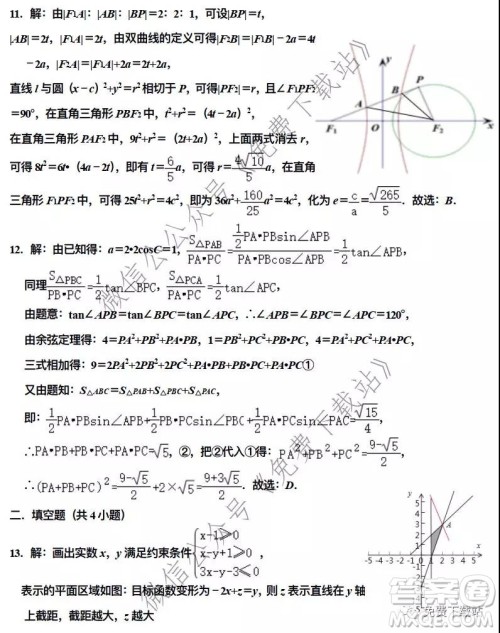 11. 解：由|F₁A|：|AB|：|BP|=2：2：1，可设|BP|=t，
|AB|=2t，|F₁A|=2t，由双曲线的定义可得|F₂B|=|F₁B|-2a=4t
-2a，|F₂A|=|F₁A|+2a=2t+2a，
直线 l 与圆（x-c）²+y²=r² 相切于 P，可得|PF₂|=r，且∠F₁PF₂
=90°，在直角三角形 PBF₂ 中，t²+r²=（4t-2a）²，
在直角三角形 PAF₂ 中，9t²+r²=（2t+2a）²，上面两式消去 r，
可得 8t²=6t•（4a-2t），即有 t=6/5 a，可得 r=4√10/5 a，在直角
三角形 F₁PF₂ 中，可得 25t²+r²=4c²，即为 36a²+160/25 a²=4c²，化为 e=c/a=√265/5．故选：B．
y
P
B
A
F₁
O
F₂
x
12. 解：由已知得：a=2•2cosC=1，S△PAB/PA•PC=½PA•PBsin∠APB/PA•PBcos∠APB=½tan∠APB，
同理 S△PBC/PB•PC=½tan∠BPC，S△PCA/PA•PC=½tan∠APC，
由题意：tan∠APB=tan∠BPC=tan∠APC，∴∠APB=∠BPC=∠APC=120°，
由余弦定理得：4=PA²+PB²+PA•PB，1=PB²+PC²+PB•PC，4=PA²+PC²+PA•PC，
三式相加得：9=2PA²+2PB²+2PC²+PA•PB+PB•PC+PA•PC①
又由题知：S△ABC=S△PAB+S△PBC+S△PAC，
即：½PA•PBsin∠APB+½PB•PCsin∠PBC+½PA•PCsin∠PAC=√15/4，
∴PA•PB+PB•PC+PA•PC=√5，②，把②代入①得：PA²+PB²+PC²=9-√5/2，
∴(PA+PB+PC)²=9-√5/2+2×√5=9+3√5/2．故选：D．
二．填空题（共 4 小题）
13. 解：画出实数 x，y 满足约束条件{x-1≥0 x-y+1≥0 3x-y-3≤0，
表示的平面区域如图：目标函数变形为-2x+z=y，则 z 表示直线在 y 轴
上截距，截距越大，z 越大
y
A
x
微信公众号《免费下载站》
微信公众号《免费下载站》
答案圈